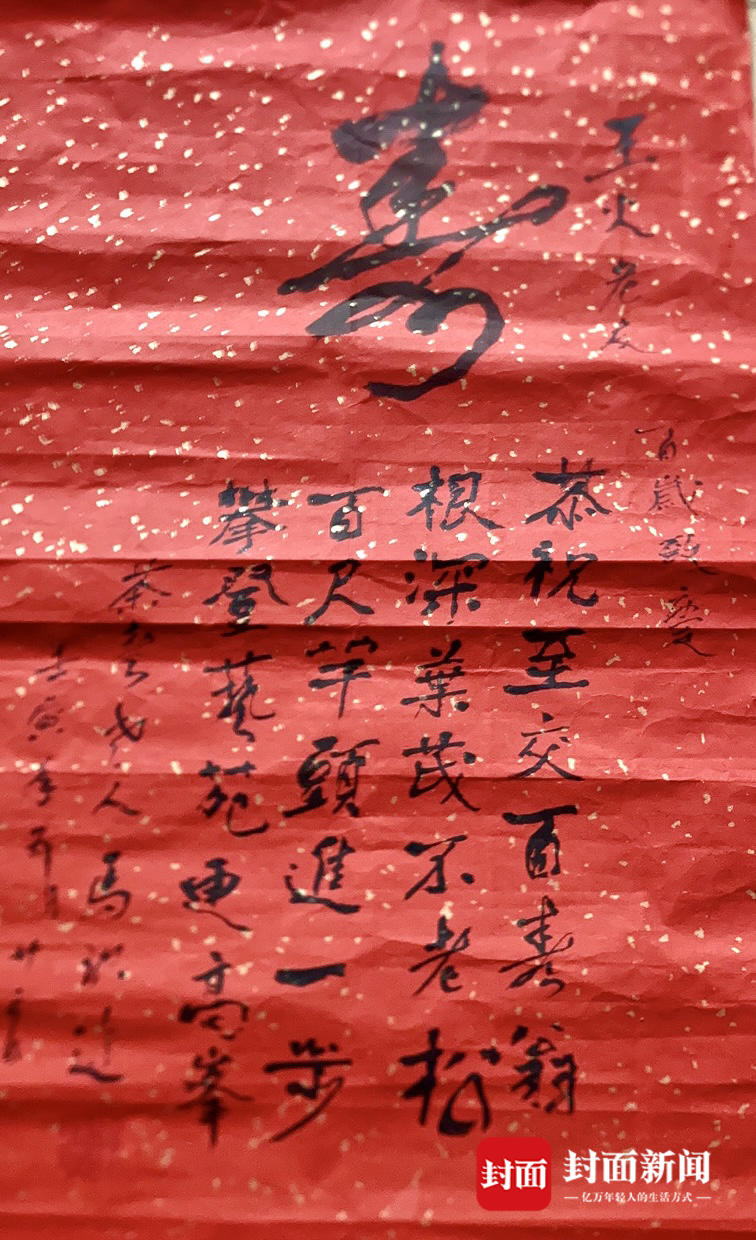 壽
王火老友
百歲致慶
恭祝至交百壽翁
根深葉茂不老松
百尺竿頭進一步
攀登藝苑更高峯
老人 馬識途
壬寅年五月廿
封面
封面新闻
亿万年轻人的生活方式